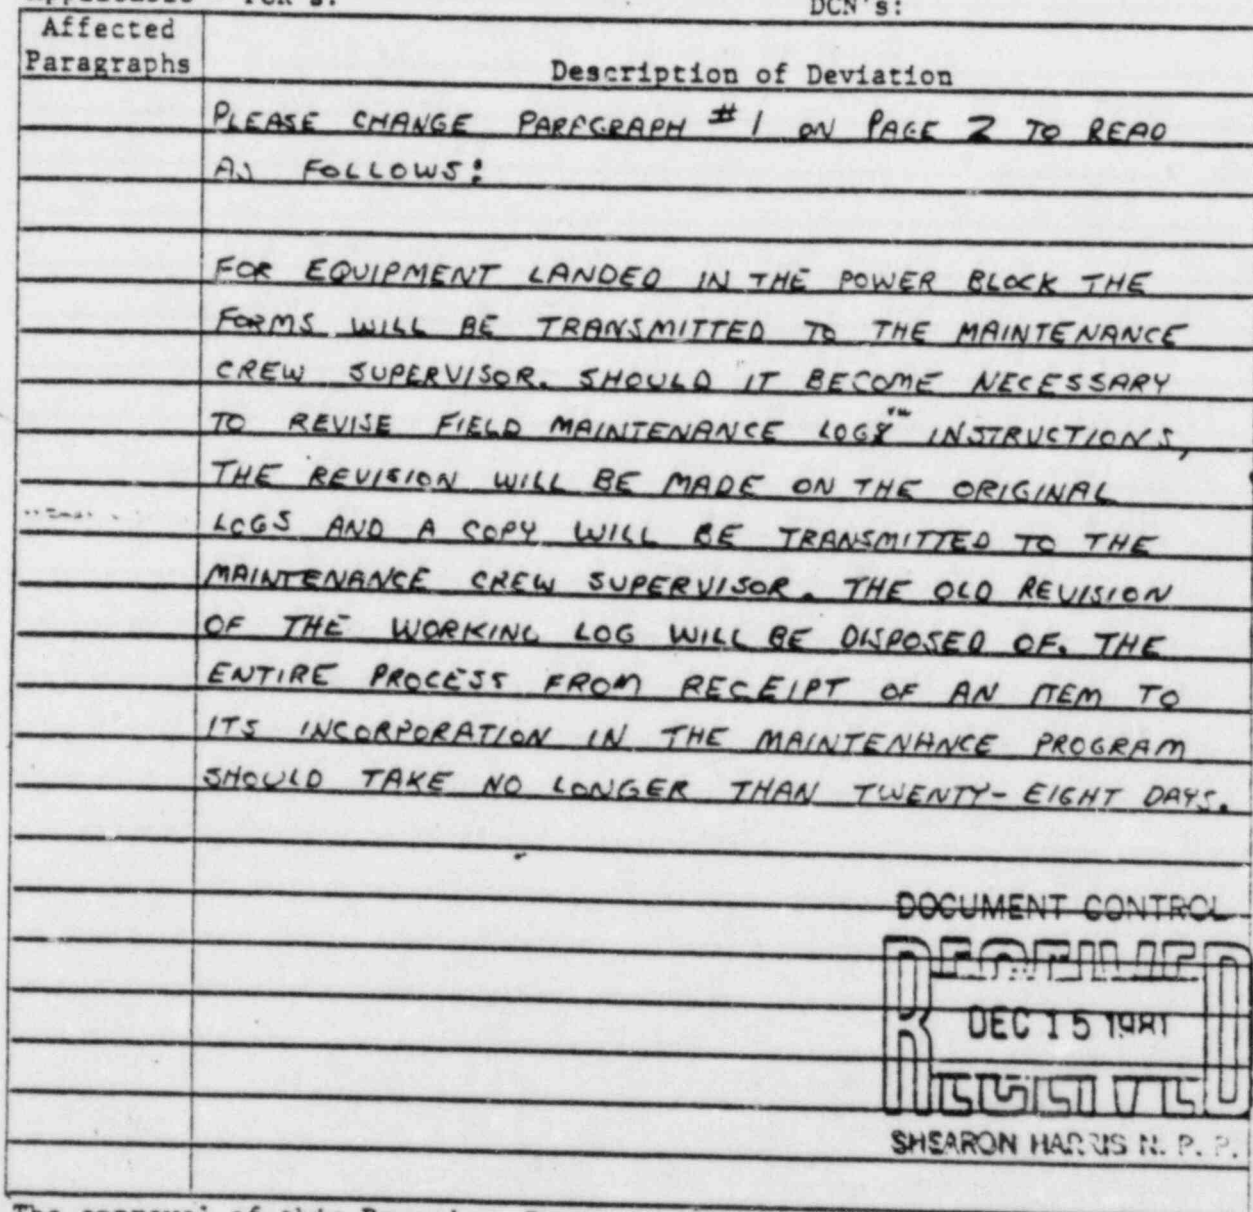 DCN's:
Affected
Paragraphs
Description of Deviation
PLEASE CHANGE PARFGRAPH #1 ON PAGE 2 TO READ
AS FOLLOWS:
FOR EQUIPMENT LANDED IN THE POWER BLOCK THE
FORMS WILL BE TRANSMITTED TO THE MAINTENANCE
CREW SUPERVISOR. SHOULD IT BECOME NECESSARY
TO REVISE FIELD MAINTENANCE LOG INSTRUCTIONS,
THE REVISION WILL BE MADE ON THE ORIGINAL
LOGS AND A COPY WILL BE TRANSMITTED TO THE
MAINTENANCE CREW SUPERVISOR. THE OLD REVISION
OF THE WORKING LOG WILL BE DISPOSED OF. THE
ENTIRE PROCESS FROM RECEIPT OF AN ITEM TO
ITS INCORPORATION IN THE MAINTENANCE PROGRAM
SHOULD TAKE NO LONGER THAN TWENTY-EIGHT DAYS.
DOCUMENT CONTROL
RECEIVED
DEC 15 1981
RECEIVED
SHEARON HARRIS N. P. P.
The approval of this